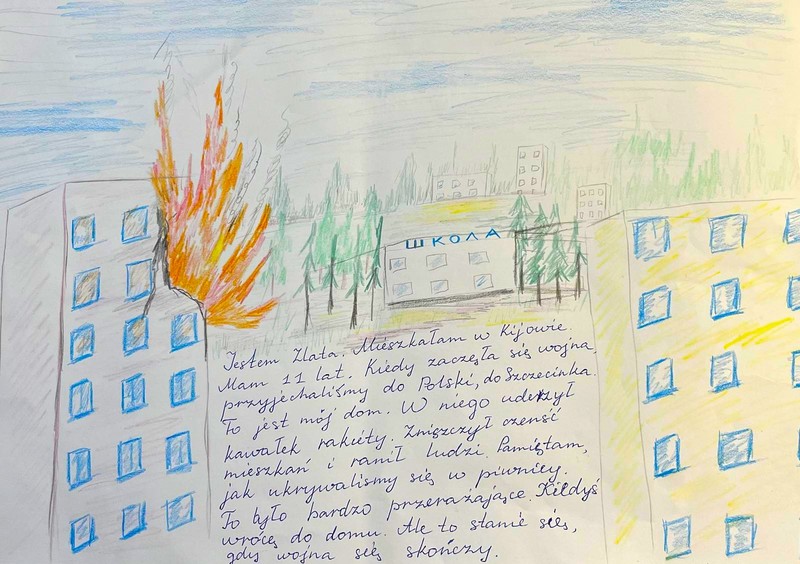 ШКОЛА
Jestem Zlata. Mieszkałam w Kijowie.
Mam 11 lat. Kiedy zaczęła się wojna,
przyjechaliśmy do Polski, do Szczecinka.
To jest mój dom. W niego uderzył
kawałek rakiety. Zniszczył czenść
mieszkań i ranił ludzi. Pamiętam,
jak ukrywaliśmy się w piwnicy.
To było bardzo przerażające. Kiedyś
wrócę do domu. Ale to stanie sięs,
gdy wojna sięs skończy.